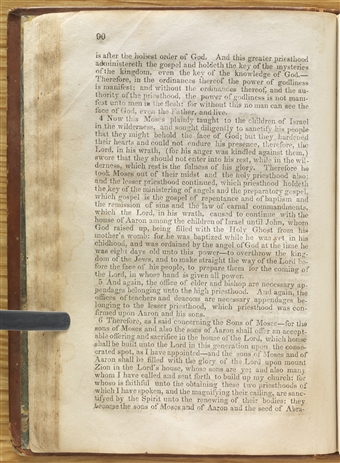 90
is after the holiest order of God. And this greater priesthood
administereth the gospel and holdeth the key of the mysteries
of the kingdom, even the key of the knowledge of God.—
Therefore, in the ordinances thereof the power of godliness
is manifest; and without the ordinances thereof, and the au-
thority of the priesthood, the power of godliness is not mani-
fest unto men in the flesh; for without this no man can see the
face of God, even the Father, and live.
4 Now this Moses plainly taught to the children of Israel
in the wilderness, and sought diligently to sanctify his people
that they might behold the face of God; but they hardened
their hearts and could not endure his presence, therefore, the
Lord, in his wrath, (for his anger was kindled against them,)
swore that they should not enter into his rest, while in the wil-
derness, which rest is the fulness of his glory. Therefore he
took Moses out of their midst and the holy priesthood also;
and the lesser priesthood continued, which priesthood holdeth
the key of the ministering of angels and the preparatory gospel,
which gospel is the gospel of repentance and of baptism and
the remission of sins and the law of carnal commandments,
which the Lord, in his wrath, caused to continue with the
house of Aaron among the children of Israel until John, whom
God raised up, being filled with the Holy Ghost from his
mother's womb: for he was baptized while he was yet in his
chidhood, and was ordained by the angel of God at the time he
was eight days old unto this power—to overthrow the king-
dom of the Jews, and to make straight the way of the Lord be-
fore the face of his people, to prepare them for the coming of
the Lord, in whose hand is given all power.
5 And again, the office of elder and bishop are necessary ap-
pendages belonging unto the high priesthood. And again, the
offices of teachers and deacons are necessary appendages be-
longing to the lesser priesthood, which priesthood was con-
firmed upon Aaron and his sons.
6 Therefore, as I said concerning the Sons of Moses—for the
sons of Moses and also the sons of Aaron shall offer an accept-
able offering and sacrifice in the house of the Lord, which house
shall be built unto the Lord in this generation upon the conse-
crated spot, as I have appointed—and the sons of Moses and of
Aaron shall be filled with the glory of the Lord upon mount
Zion in the Lord's house, whose sons are ye; and also many
whom I have called and sent forth to build up my church: for
whoso is faithful unto the obtaining these two priesthoods of
which I have spoken, and the magnifying their calling, are sanc-
tifyed by the Spirit unto the renewing of their bodies: they
become the sons of Moses and of Aaron and the seed of Abra-